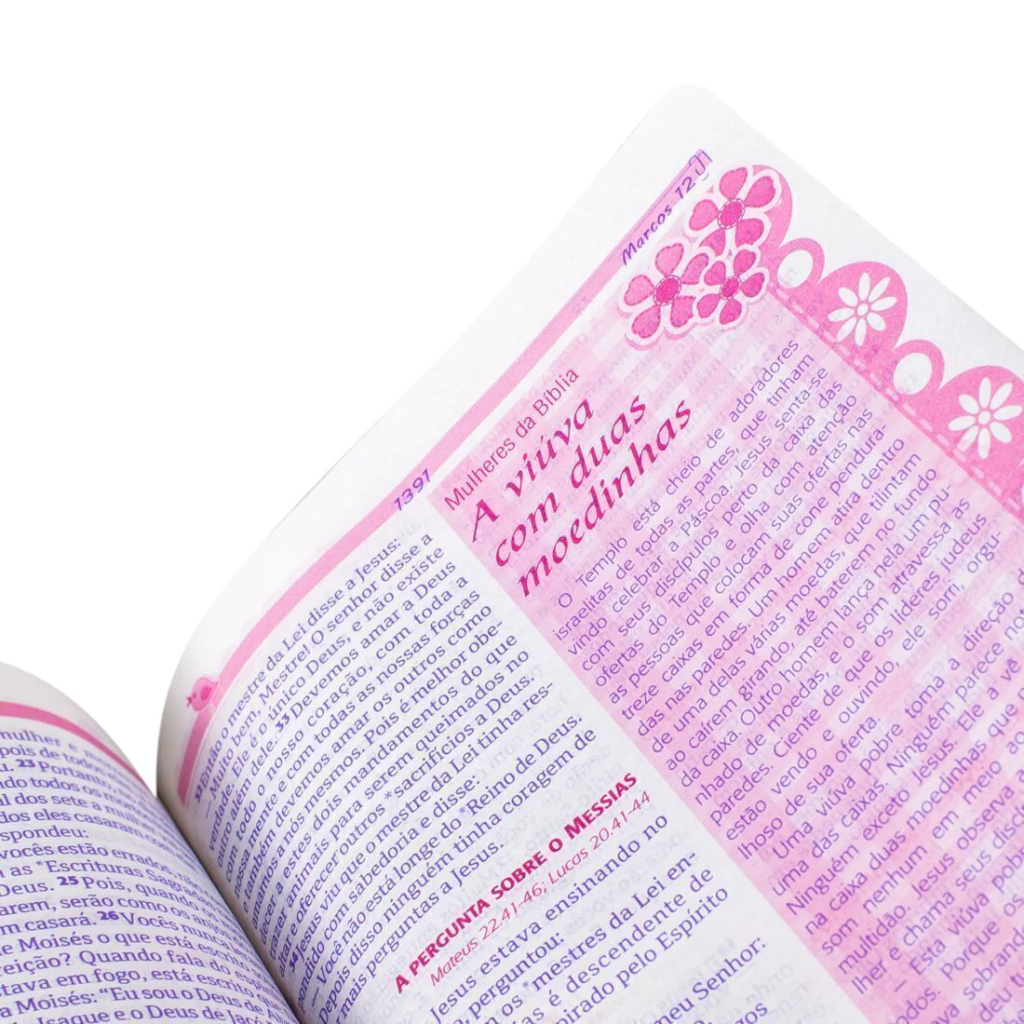 mulher e
pois de todos
23 Portanto
do todos os mor
al dos sete a mulher
dos eles casaram com
spondeu:
vocês estão errados,
m as *Escrituras Sagradas
Deus. 25 Pois, quando os
arem, serão como os anjos
m casará. 26 Vocês nunca
e Moisés o que está escrito
eição? Quando fala do
tava em fogo, está escrito
a Moisés: “Eu sou o Deus de
Isaque e o Deus de Jacó
1391
Marcos 12
32 Então o mestre da Lei disse a Jesus:
— Muito bem, Mestre! O senhor disse a
verdade. Ele é o único Deus, e não existe
outro além dele. 33 Devemos amar a Deus
com todo o nosso coração, com toda a
nossa mente e com todas as nossas forças
e também devemos amar os outros como
amamos a nós mesmos. Pois é melhor obe-
decer a estes dois mandamentos do que
trazer animais para serem queimados no
altar e oferecer outros *sacrifícios a Deus.
34 Jesus viu que o mestre da Lei tinha res-
pondido com sabedoria e disse:
— Você não está longe do *Reino de Deus.
Depois disso ninguém tinha coragem de
fazer mais perguntas a Jesus.
A PERGUNTA SOBRE O MESSIAS
Mateus 22.41-46; Lucas 20.41-44
Jesus estava ensinando no
o, perguntou:
os *mestres da Lei en-
as é descendente de
pirado pelo Espírito
meu Senhor:
Mulheres da Bíblia
A viúva
com duas
moedinhas
O Templo está cheio de adoradores
israelitas de todas as partes, que tinham
vindo celebrar a Páscoa. Jesus senta-se
com seus discípulos perto da caixa das
ofertas do Templo e olha com atenção
as pessoas que colocam suas ofertas nas
treze caixas em forma de cone pendura-
das nas paredes. Um homem atira dentro
de uma delas várias moedas, que tilintam
ao caírem girando, até baterem no fundo
da caixa. Outro homem lança nela um pu-
nhado de moedas, e o som atravessa as
paredes. Ciente de que os líderes judeus
estão vendo e ouvindo, ele sorri, orgu-
lhoso de sua oferta.
Uma viúva pobre toma a direção
das caixas. Ninguém
Ninguém exceto Jesus. Ele a vê
na caixa duas moedinhas que
multidão, Jesus observa a
lher e chama seus
— Esta viúva pobre
todos. Porque
sobrando
deu